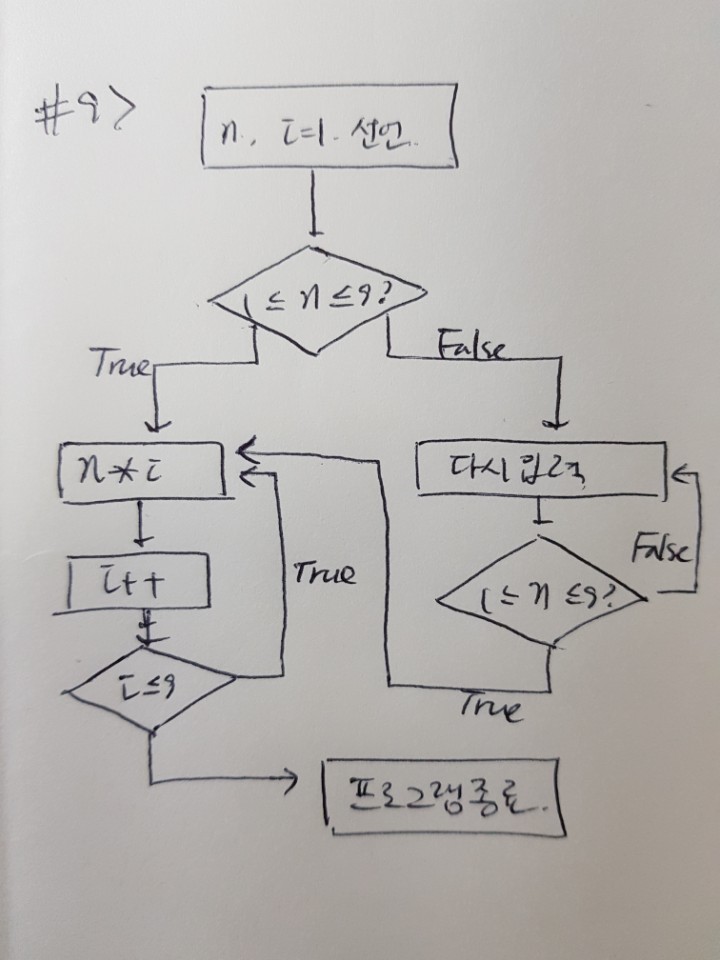 #9>
n, i=1. 선언.
1 ≤ n ≤ 9?
True
False
n * i
다시입력
i++
True
False
1 ≤ n ≤ 9?
i ≤ 9
True
프로그램종료.